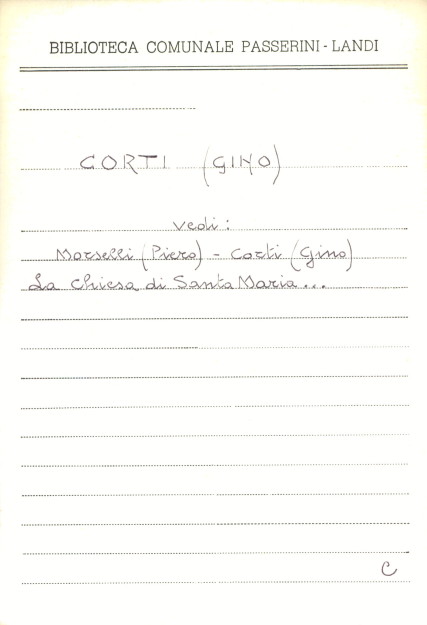 BIBLIOTECA COMUNALE PASSERINI-LANDI
CORTI (GINO)
vedi:
Morselli (Piero) - Corti (Gino)
La Chiesa di Santa Maria...
C